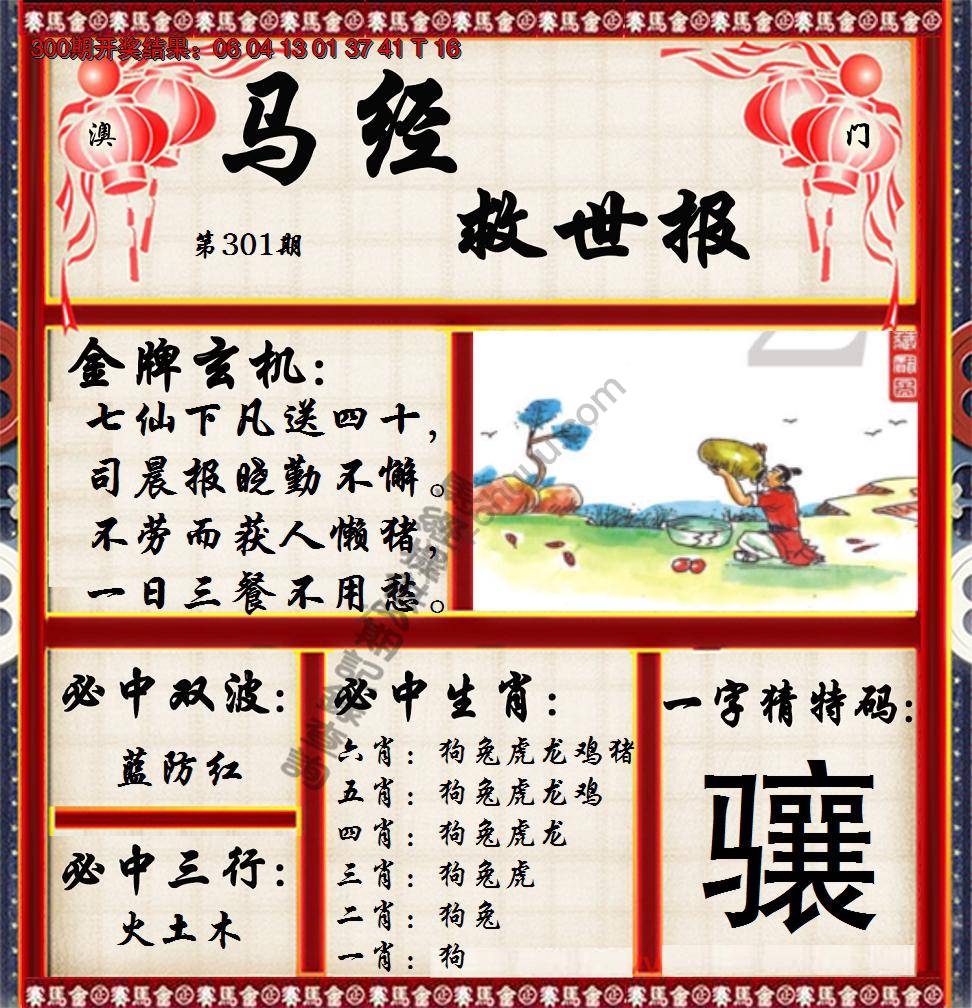 300期开奖结果：06 04 13 01 37 41 T 16
澳
门
马经
救世报
第301期
金牌玄机：
七仙下凡送四十，
司晨报晓勤不懈。
不劳而获人懒猪，
一日三餐不用愁。
必中双波：
蓝防红
必中三行：
火土木
必中生肖：
六肖：狗兔虎龙鸡猪
五肖：狗兔虎龙鸡
四肖：狗兔虎龙
三肖：狗兔虎
二肖：狗兔
一肖：狗
一字猜特码：
骧